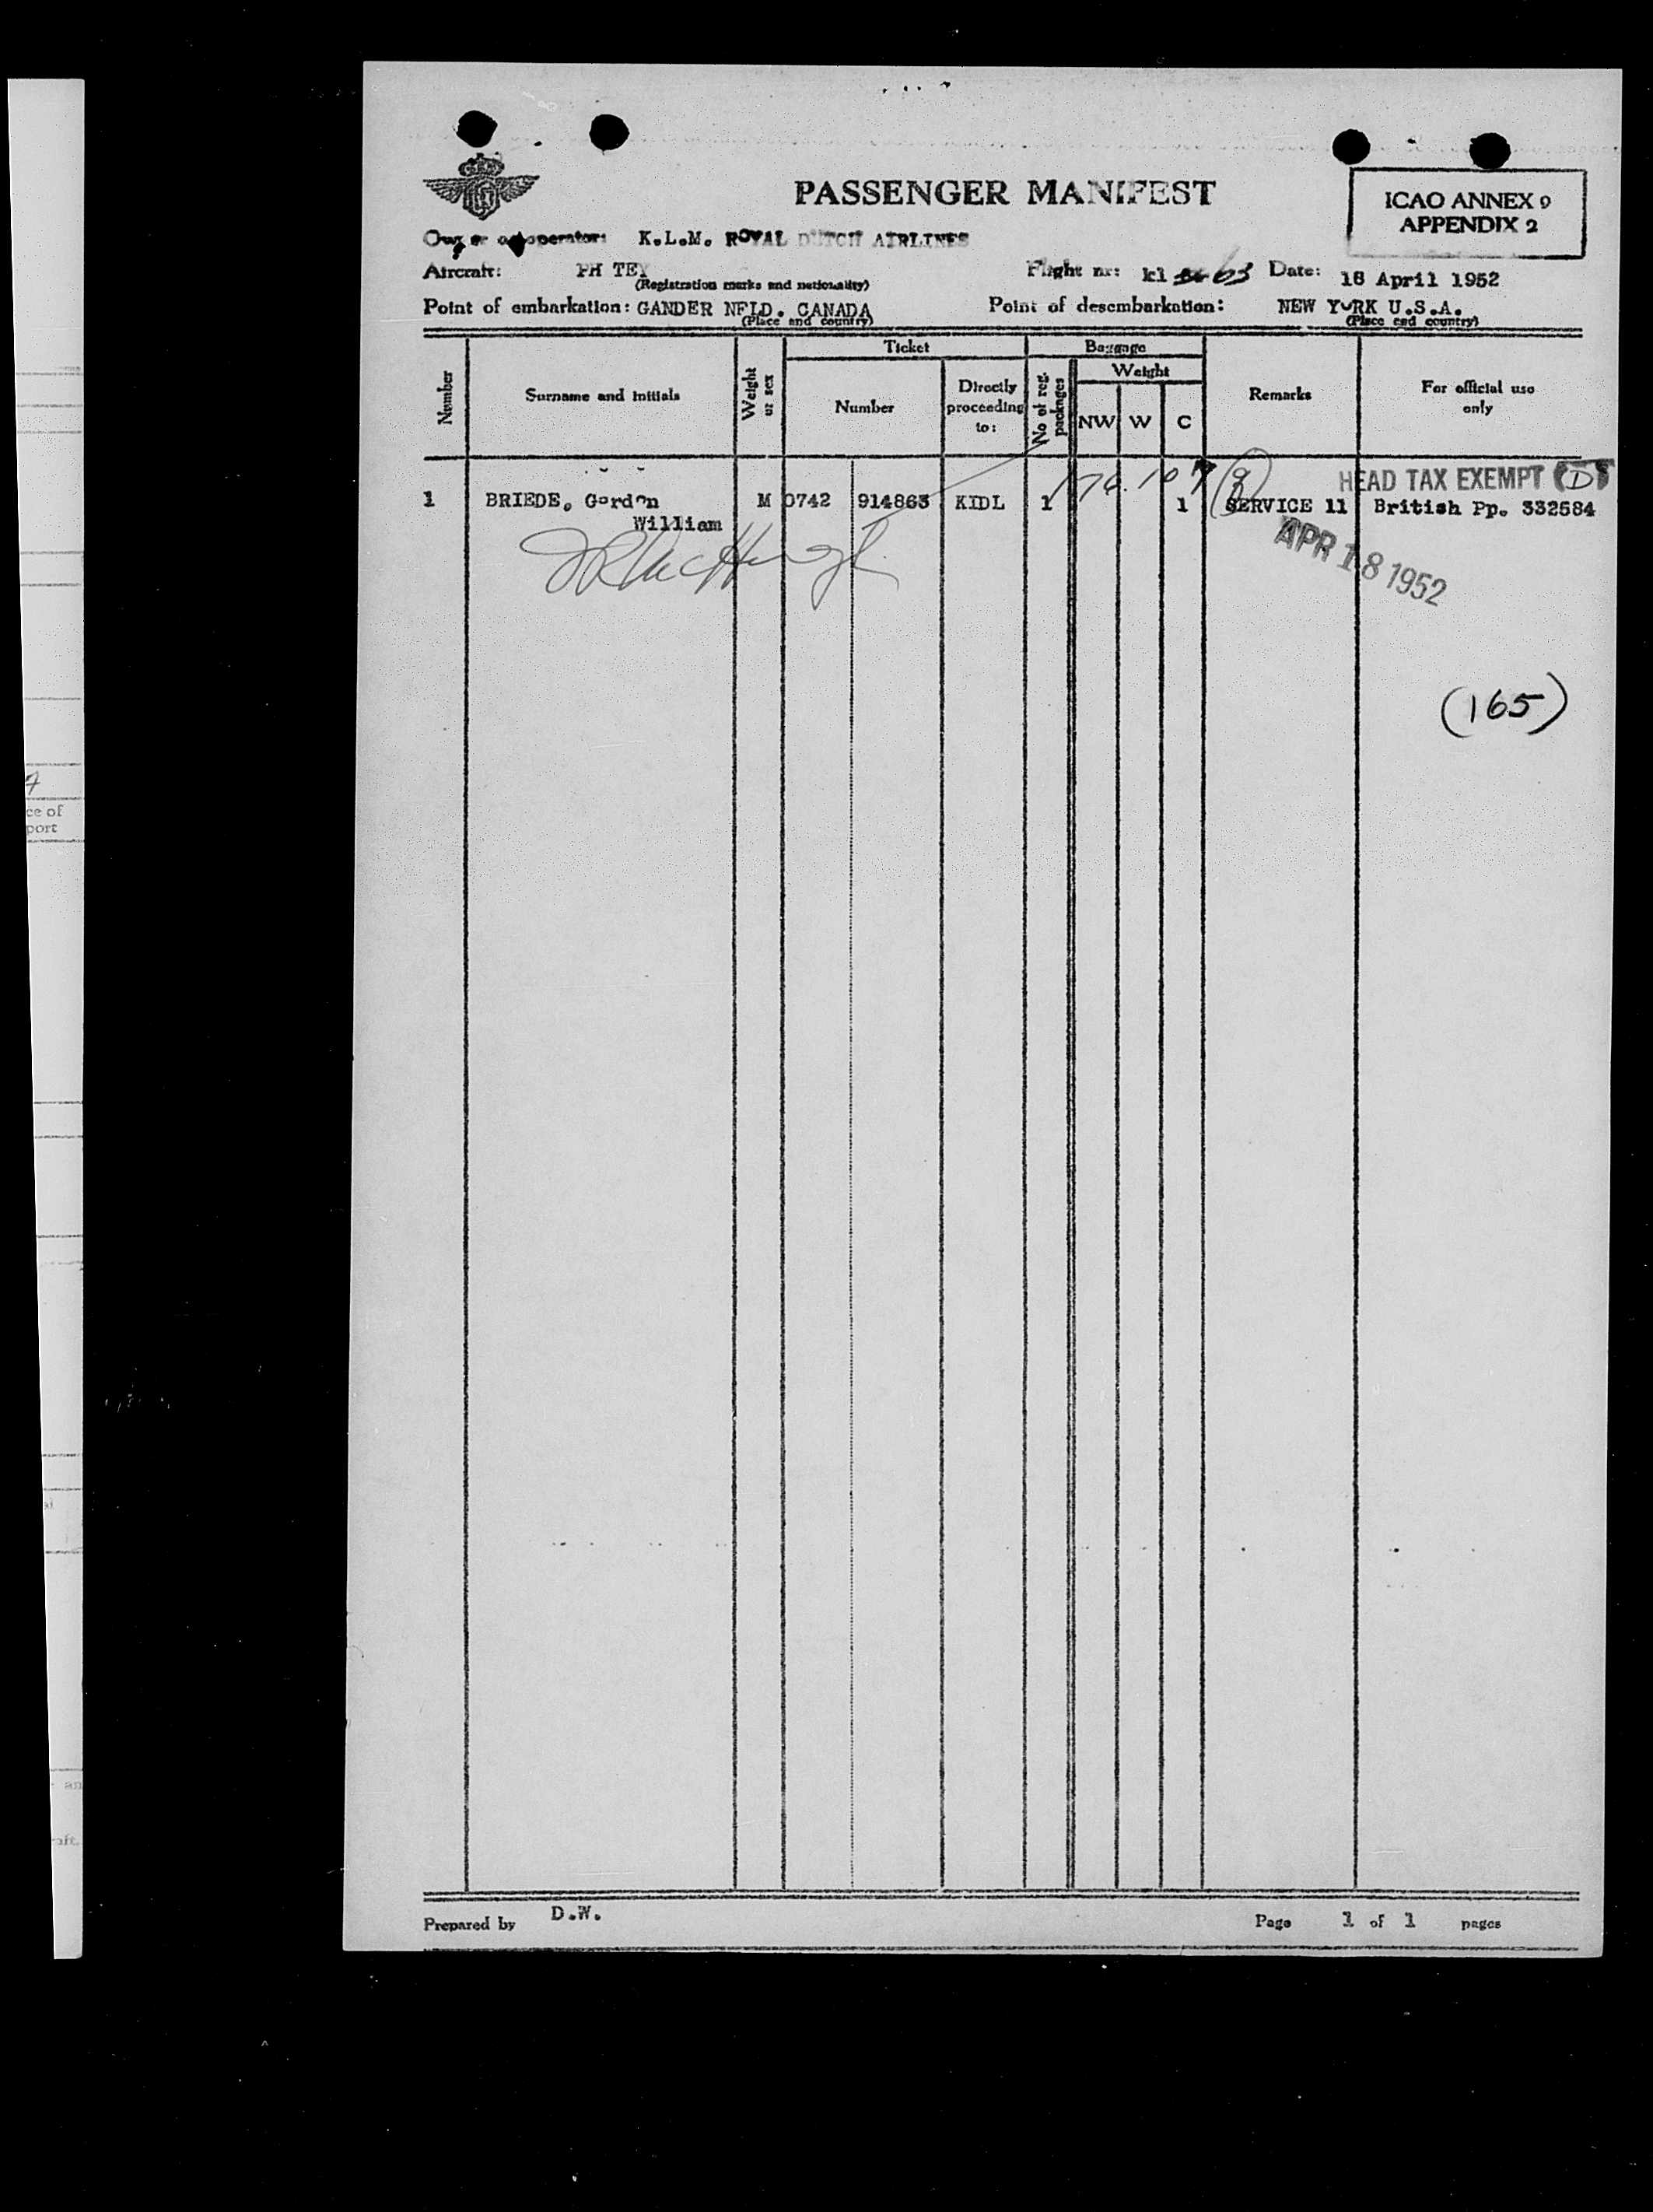 PASSENGER MANIFEST
ICAO ANNEX 9
APPENDIX 2
Owner or operator: K.L.M. ROYAL DUTCH AIRLINES
Aircraft: PH TEY Flight nr: kl 63 Date: 18 April 1952
(Registration marks and nationality)
Point of embarkation: GANDER NFLD. CANADA Point of desembarkation: NEW YORK U.S.A.
(Place and country) (Place and country)
Number Surname and initials Weight or sex Ticket Number Directly proceeding to: Baggage No of reg. packages Weight NW W C Remarks For official use only
HEAD TAX EXEMPT (D)
1 BRIEDE, Gordon M 0742 914863 KIDL 1 1 SERVICE 11 British Pp. 332584
William
APR 18 1952
(165)
Prepared by D.W. Page 1 of 1 pages
7
ce of
port